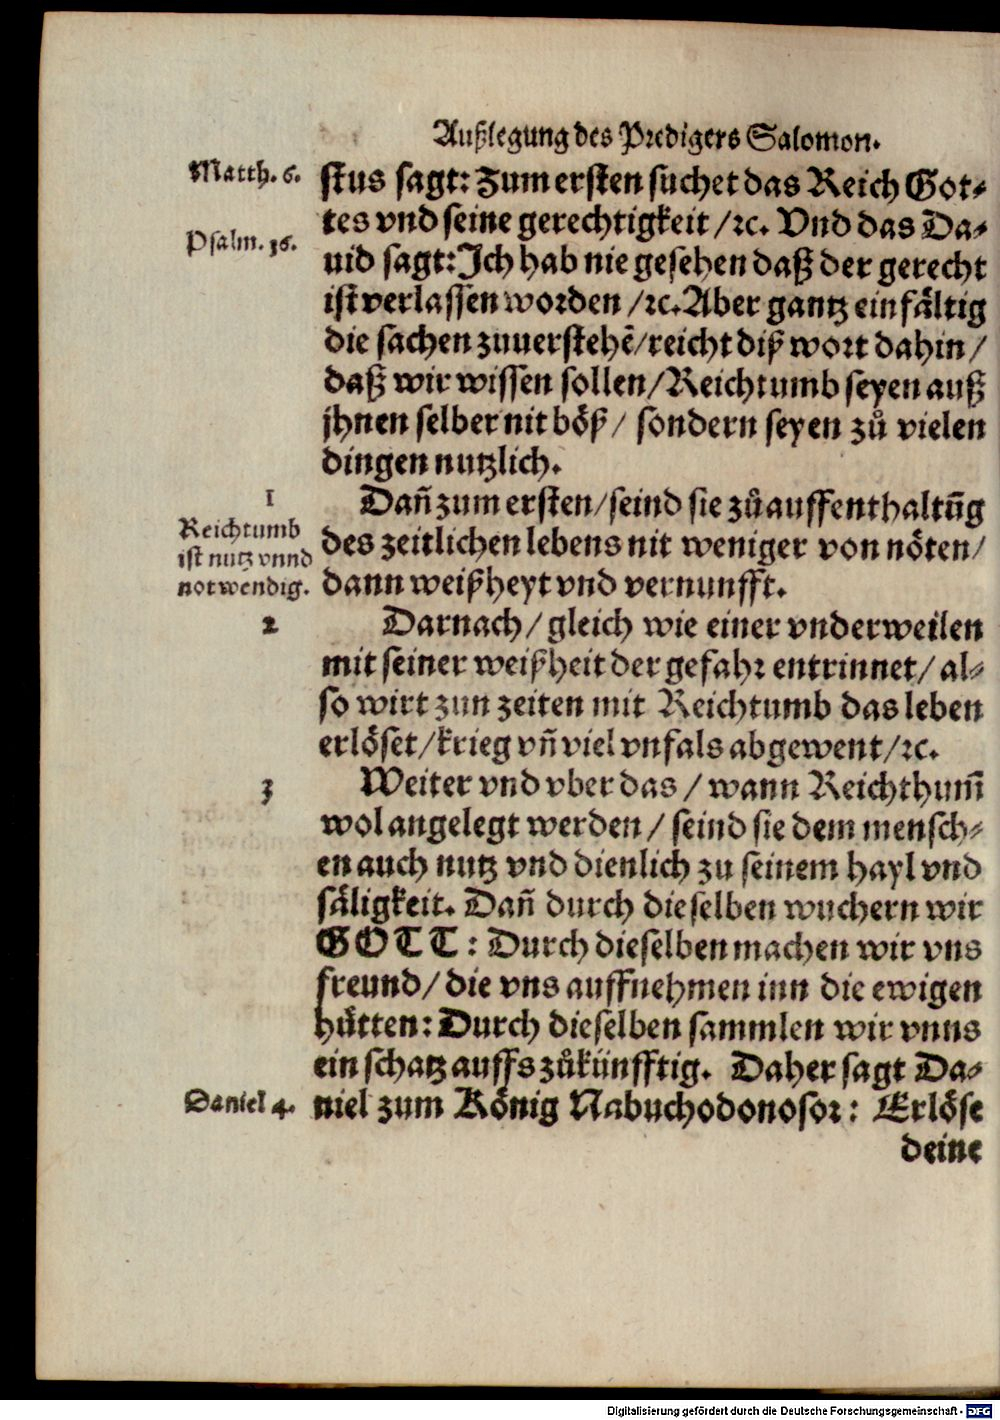 Außlegung des Predigers Salomon.
Matth. 6.
stus sagt: Zum ersten suchet das Reich Got⸗
tes vnd seine gerechtigkeit /ꝛc. Vnd das Da⸗
Psalm. 36.
uid sagt: Ich hab nie gesehen daß der gerecht
ist verlassen worden /ꝛc. Aber gantz einfältig
die sachen zuuerstehẽ/ reicht diß wort dahin/
daß wir wissen sollen/ Reichtumb seyen auß
jhnen selber nit böß/ sondern seyen zů vielen
dingen nutzlich.
1
Reichtumb
ist nutz vnnd
notwendig.
Dañ zum ersten/ seind sie zů auffenthaltũg
des zeitlichen lebens nit weniger von nöten/
dann weißheyt vnd vernunfft.
2
Darnach/ gleich wie einer vnderweilen
mit seiner weißheit der gefahr entrinnet/ al⸗
so wirt zun zeiten mit Reichtumb das leben
erlöset/ krieg vñ viel vnfals abgewent/ꝛc.
3
Weiter vnd vber das / wann Reichthum̃
wol angelegt werden / seind sie dem mensch⸗
en auch nutz vnd dienlich zu seinem hayl vnd
säligkeit. Dañ durch dieselben wuchern wir
GOTT: Durch dieselben machen wir vns
freund/ die vns auffnehmen inn die ewigen
hütten: Durch dieselben sammlen wir vnns
ein schatz auffs zůkünfftig. Daher sagt Da⸗
Daniel 4.
niel zum König Nabuchodonosor: Erlöse
deine
Digitalisierung gefördert durch die Deutsche Forschungsgemeinschaft - DFG